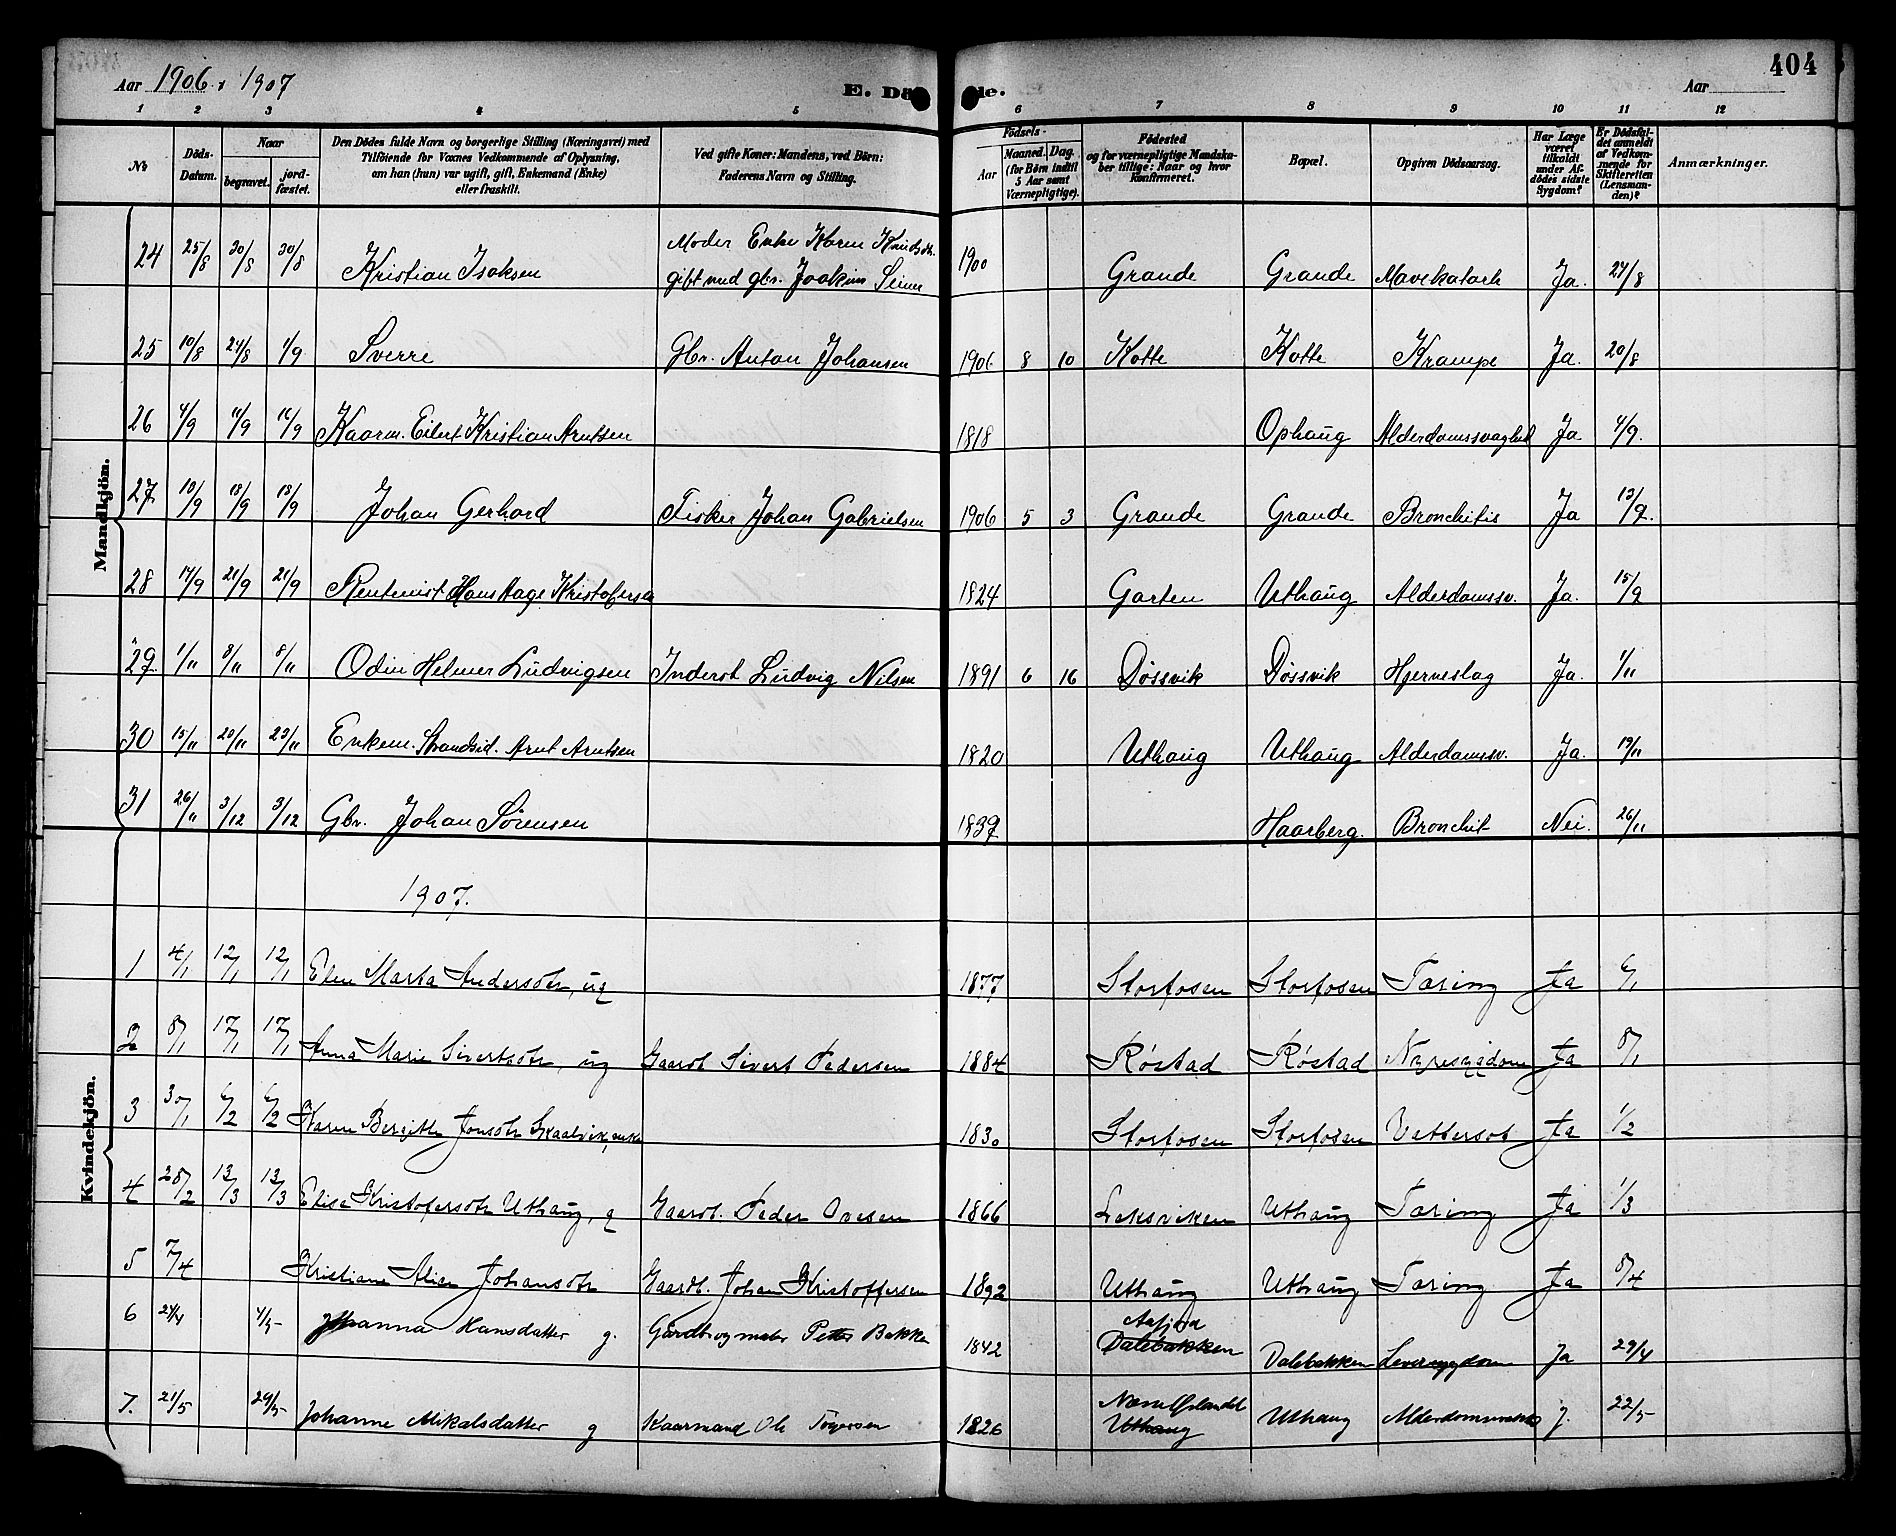 404
Aar 1906 & 1907
E. Döde.
Aar
1 2 3 4 5 6 7 8 9 10 11 12
No.
Döds-Datum.
Naar
begravet.
jord-fæstet.
Den Dödes fulde Navn og borgerlige Stilling (Næringsvei) med
Tilföiende for Voxnes Vedkommende af Oplysning,
om han (hun) var ugift, gift, Enkemand (Enke)
eller fraskilt.
Ved gifte Koner: Mandens, ved Börn:
Faderens Navn og Stilling.
Födsels-
Aar
Maaned. Dag.
(for Börn indtil
5 Aar samt
Værnepligtige).
Födested
og for værnepligtige Mandska-
ber tillige: Naar og hvor
konfirmeret.
Bopæl.
Opgiven Dödsaarsag.
Har Læge
været
tilkaldt
under Af-
dödes sidste
Sygdom?
Er Dödsfal-
det anmeldt
af Vedkom-
mende for
Skifteretten
(Lensman-
den)?
Anmærkninger.
Mandkjön.
24 25/8 30/8 30/8 Kristian Isaksen Moder Enke Karen Knudsdtr. gift med gbr. Joakim 1900 Grande Grande Mavekatarh Ja. 27/8
25 10/8 24/8 1/9 Sverre Gbr. Anton Johansen 1906 8 10 Kotte Kotte Krampe Ja. 20/8
26 4/9 11/9 16/9 Kaarm. Eilert Kristian Arntsen 1818 Ophaug Alderdomssvaghed Ja 4/9.
27 10/9 18/9 18/9 Johan Gerhard Fisker Johan Gabrielsen 1906 5 3 Grande Grande Bronchitis Ja 13/9.
28 14/9 21/9 21/9 Rentenist Hans Aage Kristofersen 1824 Garten Uthaug Alderdomssv. Ja. 15/9
29 1/11 8/11 8/11 Odin Helmer Ludvigsen Inderst Ludvig Nilsen 1891 6 16 Døssvik Døssvik Hjerneslag Ja. 1/11
30 15/11 20/11 23/11 Enkem. Strandsid. Arnt Arntsen 1820 Uthaug Uthaug Alderdomssv. Ja. 19/11
31 26/11 3/12 3/12 Gbr. Johan Sørensen 1839 Haarberg. Bronchit Nei. 26/11
1907.
Kvindekjön.
1 4/1 12/1 12/1 Elen Marta Andersdtr, ug 1877 Storfosen Storfosen Tæring Ja 6/1
2 8/1 17/1 17/1 Anna Marie Sivertsdtr, ug Gaardb Sivert Pedersen 1884 Røstad Røstad Nyresygdom Ja 8/1
3 30/1 6/2 6/2 Karen Bergitte Jonsdtr Skaalvik, enke 1830 Storfosen Storfosen Vattersot Ja 1/2
4 28/2 13/3 13/3 Elise Kristofersdtr Uthaug, g Gaardb. Peder Ovesen 1866 Leksviken Uthaug Tæring Ja 1/3
5 7/4 Kristiane Johansdtr Gaardb. Johan Kristoffersen 1892 Uthaug Uthaug Tæring Ja 8/4
6 24/4 4/5 Johanna Hansdatter g. Gårdbr og maler Petter Bakken 1842 Aafjord Dalebakken Dalebakken Leversygdom Ja 29/4
7. 21/5 29/5 Johanne Mikalsdatter g Kaarmand Ole 1826 Uthaug Uthaug j. 22/5